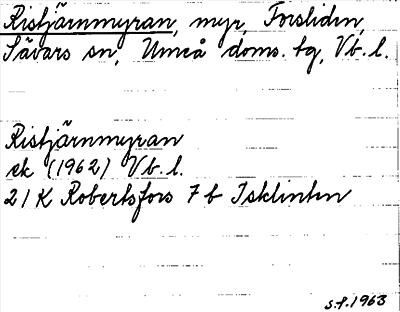 Ristjärnmyran, myr, Forsliden,
Sävars sn, Umeå doms. tg, Vb. l.
Ristjärnmyran
ek (1962) Vb. l.
21 K Robertsfors 7 b Isklinten
s.f. 1963